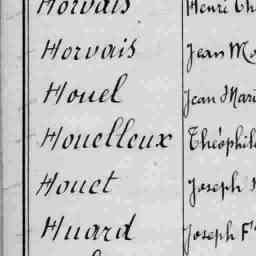 Horvais Henri
Horvais Jean
Houel Jean Mari
Houelleux Théophil
Houet Joseph
Huard Joseph F